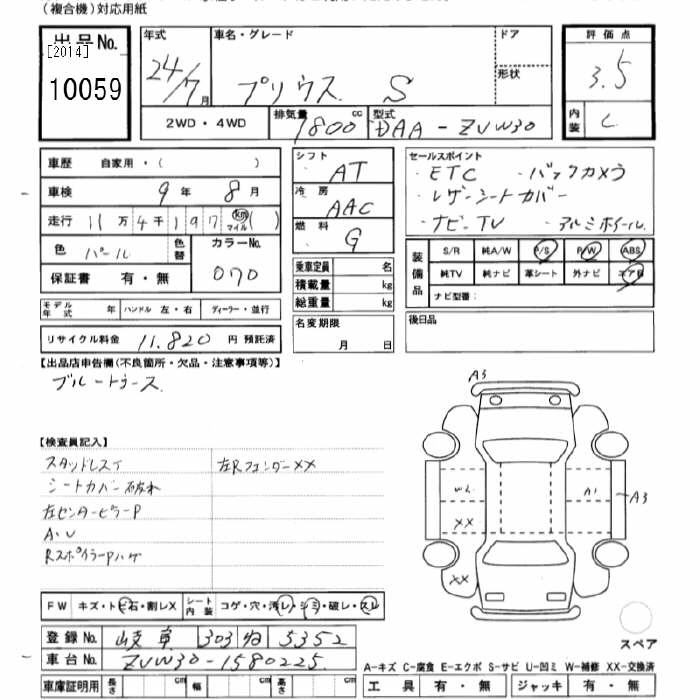 (複合機)対応用紙
出品No. [2014] 10059
年式 24/7月
車名・グレード プリウス S
ドア
形状
評価点 3.5
内装 C
2WD・4WD
排気量 1800 cc
型式 DAA-ZVW30
車歴 自家用・( )
車検 9年 8月
走行 11万4千197 km マイル ( )
色 パール 色替
カラーNo. 070
保証書 有・無
モデル年式 年 ハンドル 左・右 ディーラー・並行
リサイクル料金 11.820 円 預託済
シフト AT
冷房 AAC
燃料 G
乗車定員 名
積載量 kg
総重量 kg
名変期限 月 日
セールスポイント
・ETC ・バックカメラ
・レザーシートカバー
・ナビ・TV ・アルミホイール
装備品 S/R 純A/W P/S P/W ABS
純TV 純ナビ 革シート 外ナビ エアB
ナビ型番:
後日品
【出品店申告欄(不良箇所・欠品・注意事項等)】
ブルートゥース
【検査員記入】
スタッドレスT 左Rフェンダーxx
シートカバー破れ
左センターピラーP
A.U
RスポイラーPハゲ
A3
WL A1 A3
XX
XX
スペア
FW キズ・トビ石・割レX シート内装 コゲ・穴・汚レ・シミ・破レ・スレ
登録No. 岐阜 303 ね 5352
車台No. ZVW30-1580225
車庫証明用 長さ cm 幅 cm 高さ cm
A-キズ C-腐食 E-エクボ S-サビ U-凹ミ W-補修 XX-交換済
工具 有・無 ジャッキ 有・無